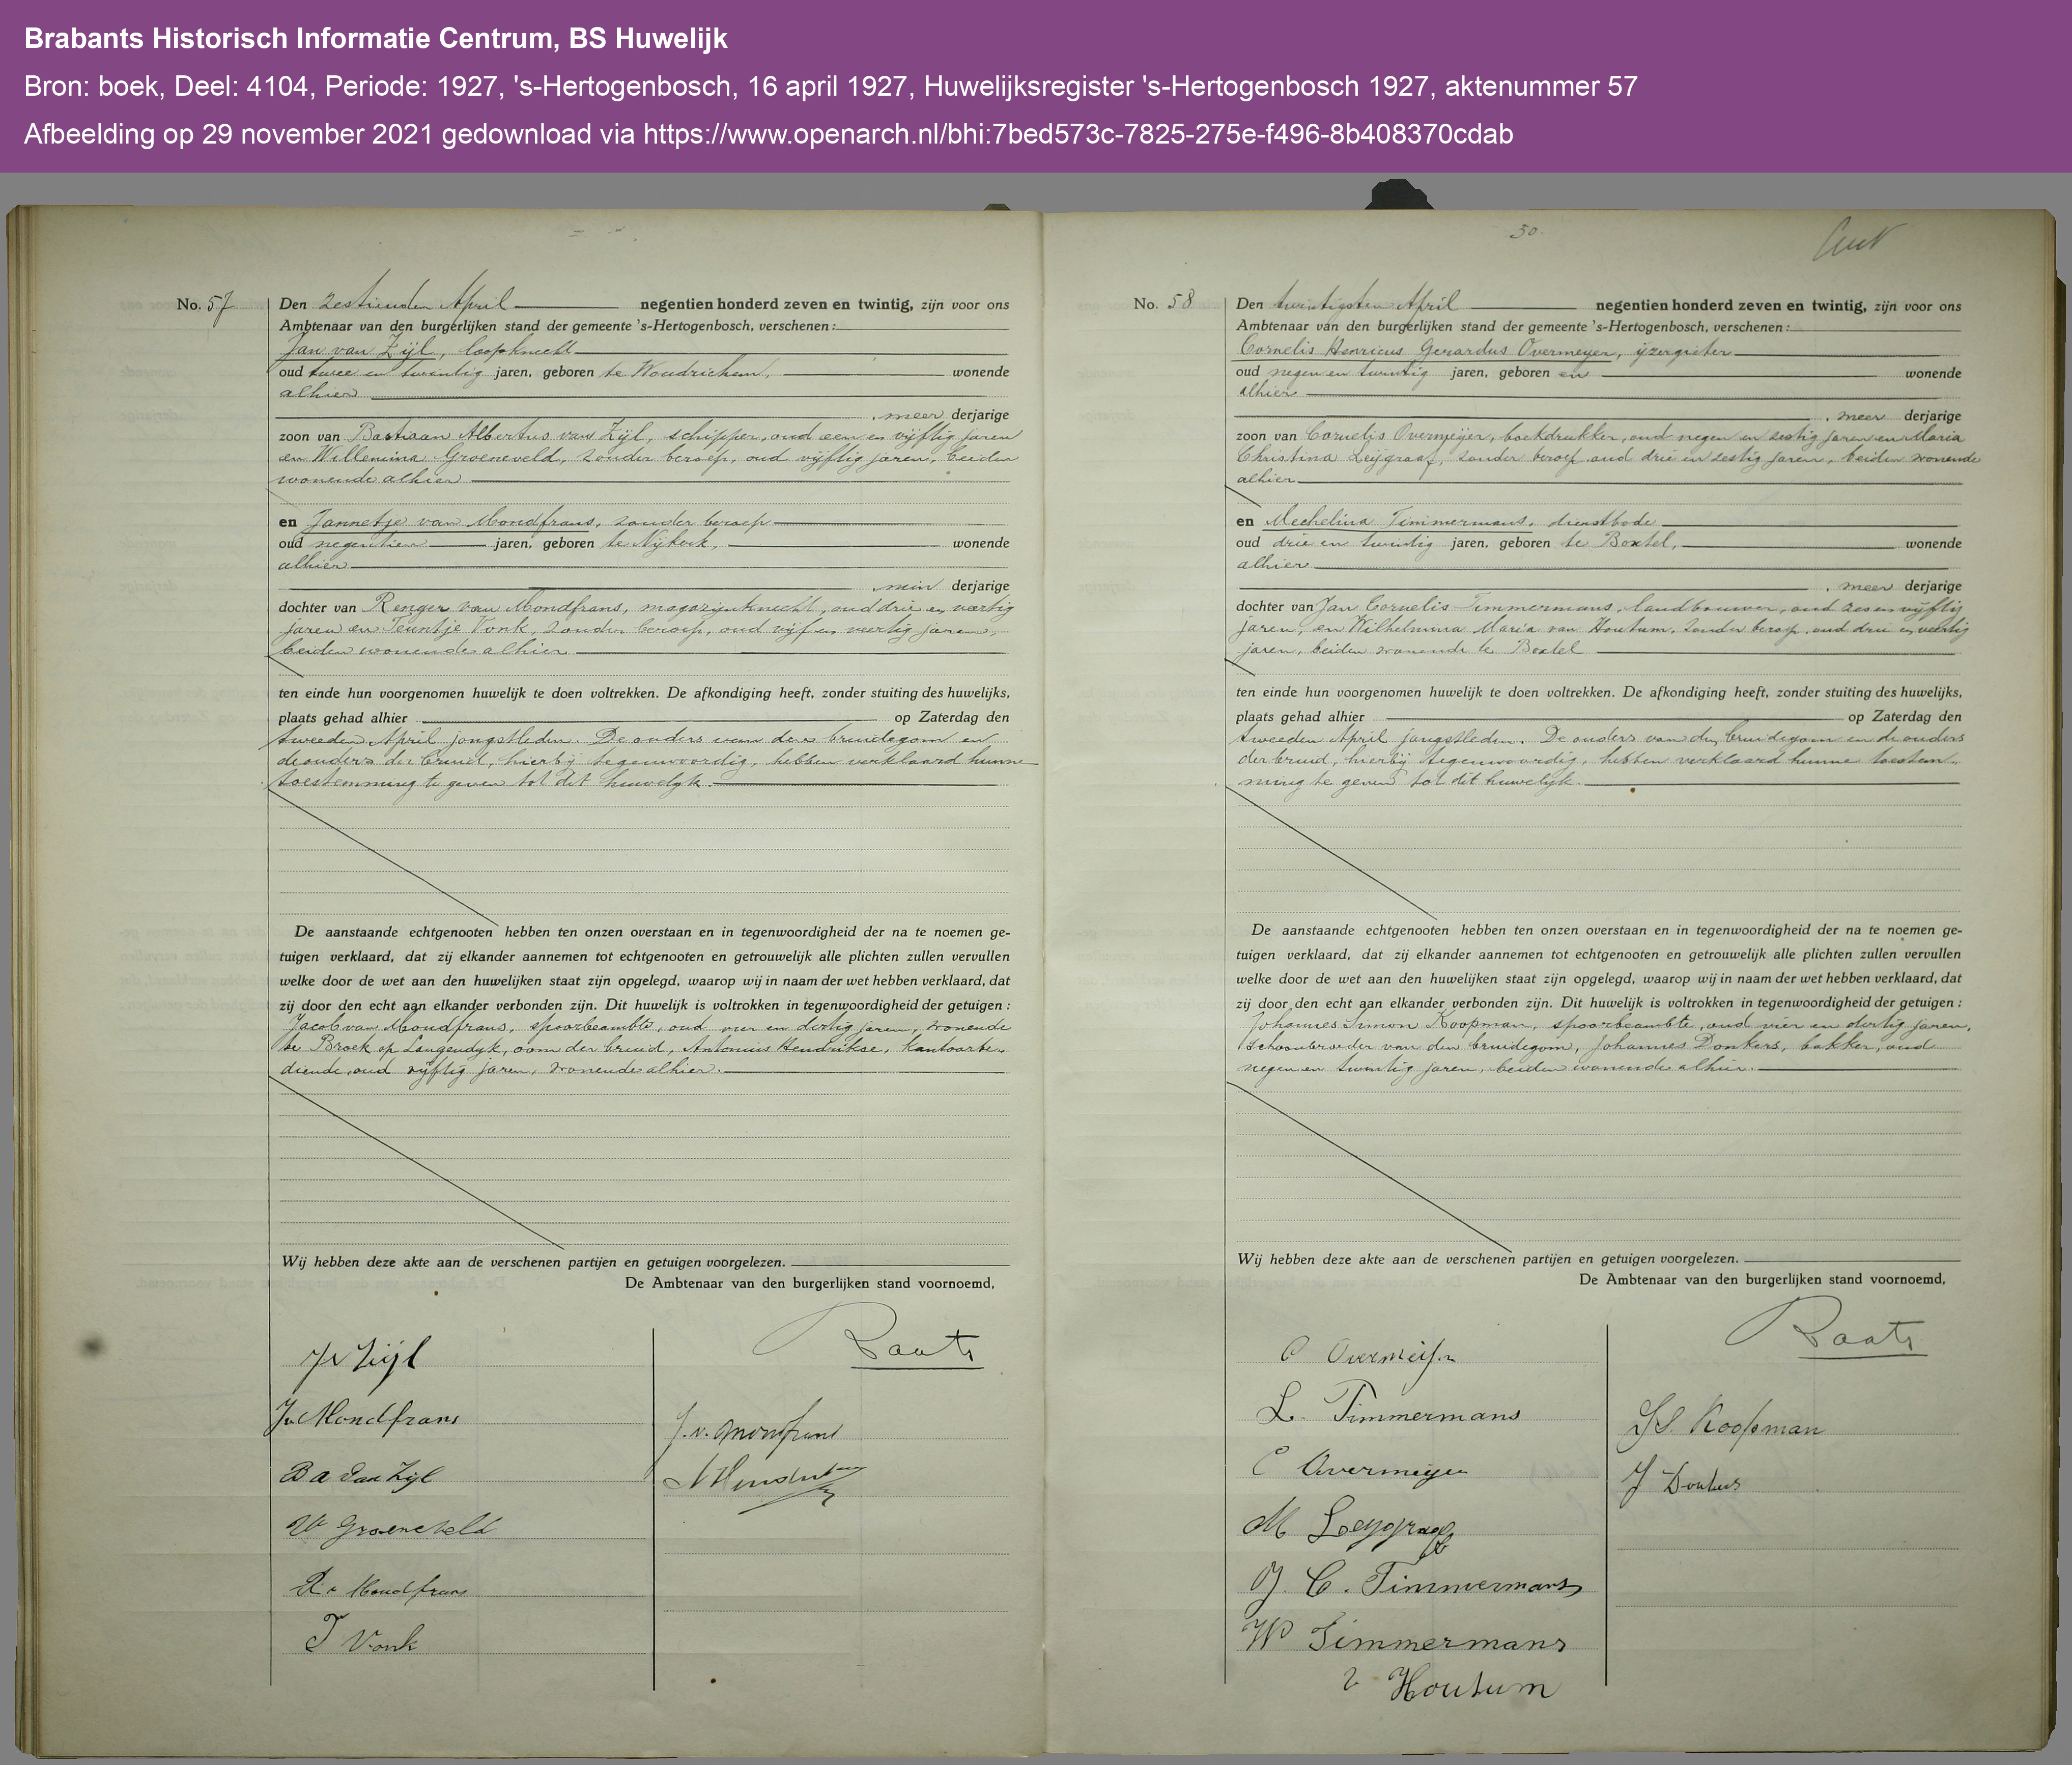 Brabants Historisch Informatie Centrum, BS Huwelijk
Bron: boek, Deel: 4104, Periode: 1927, 's-Hertogenbosch, 16 april 1927, Huwelijksregister 's-Hertogenbosch 1927, aktenummer 57
Afbeelding op 29 november 2021 gedownload via https://www.openarch.nl/bhi:7bed573c-7825-275e-f496-8b408370cdab
No. 57
Den zestienden April negentien honderd zeven en twintig, zijn voor ons
Ambtenaar van den burgerlijken stand der gemeente 's-Hertogenbosch, verschenen:
Jan van Zijl, loopknecht
oud twee en twintig jaren, geboren te Woudrichem, wonende
alhier
, meer derjarige
zoon van Bastiaan Albertus van Zijl, schipper, oud een en vijftig jaren
en Willemina Groeneveld, zonder beroep, oud vijftig jaren, beiden
wonende alhier
en Jannetje van Mondfrans, zonder beroep
oud negentien jaren, geboren te Nijkerk, wonende
alhier
, min derjarige
dochter van Renger van Mondfrans, magazijnknecht, oud drie en veertig
jaren en Teuntje Vonk, zonder beroep, oud vijf en veertig jaren,
beiden wonende alhier
ten einde hun voorgenomen huwelijk te doen voltrekken. De afkondiging heeft, zonder stuiting des huwelijks,
plaats gehad alhier op Zaterdag den
tweeden April jongstleden. De ouders van den bruidegom en
de ouders der bruid, hierbij tegenwoordig, hebben verklaard hunne
toestemming te geven tot dit huwelijk.
De aanstaande echtgenooten hebben ten onzen overstaan en in tegenwoordigheid der na te noemen ge-
tuigen verklaard, dat zij elkander aannemen tot echtgenooten en getrouwelijk alle plichten zullen vervullen
welke door de wet aan den huwelijken staat zijn opgelegd, waarop wij in naam der wet hebben verklaard, dat
zij door den echt aan elkander verbonden zijn. Dit huwelijk is voltrokken in tegenwoordigheid der getuigen:
Jacob van Mondfrans, spoorbeambte, oud vier en dertig jaren, wonende
te Broek op Langendijk, oom der bruid, Antonius Hendrikse, kantoorbe-
diende, oud vijftig jaren, wonende alhier.
Wij hebben deze akte aan de verschenen partijen en getuigen voorgelezen.
De Ambtenaar van den burgerlijken stand voornoemd,
Raats
J v Zijl
J v Mondfrans
J. v. Mondfrans
B A Van Zijl
W Groeneveld
R v Mondfrans
T Vonk
50.
No. 58
Den twintigsten April negentien honderd zeven en twintig, zijn voor ons
Ambtenaar van den burgerlijken stand der gemeente 's-Hertogenbosch, verschenen:
Cornelis Henricus Gerardus Overmeyer, ijzergieter
oud negen en twintig jaren, geboren en wonende
alhier
, meer derjarige
zoon van Cornelis Overmeijer, boekdrukker, oud negen en zestig jaren en Maria
Christina Leijgraaf, zonder beroep oud drie en zestig jaren, beiden wonende
alhier
en Mechelina Timmermans, dienstbode
oud drie en twintig jaren, geboren te Boxtel, wonende
alhier
, meer derjarige
dochter van Jan Cornelis Timmermans, landbouwer, oud zes en vijftig
jaren, en Wilhelmina Maria van Houtum, zonder beroep, oud drie en veertig
jaren, beiden wonende te Boxtel
ten einde hun voorgenomen huwelijk te doen voltrekken. De afkondiging heeft, zonder stuiting des huwelijks,
plaats gehad alhier op Zaterdag den
tweeden April jongstleden. De ouders van den bruidegom en de ouders
der bruid, hierbij tegenwoordig, hebben verklaard hunne toestem-
ming te geven tot dit huwelijk.
De aanstaande echtgenooten hebben ten onzen overstaan en in tegenwoordigheid der na te noemen ge-
tuigen verklaard, dat zij elkander aannemen tot echtgenooten en getrouwelijk alle plichten zullen vervullen
welke door de wet aan den huwelijken staat zijn opgelegd, waarop wij in naam der wet hebben verklaard, dat
zij door den echt aan elkander verbonden zijn. Dit huwelijk is voltrokken in tegenwoordigheid der getuigen:
Johannes Simon Koopman, spoorbeambte, oud vier en dertig jaren,
schoonbroeder van den bruidegom, Johannes Donkers, bakker, oud
negen en twintig jaren, beiden wonende alhier.
Wij hebben deze akte aan de verschenen partijen en getuigen voorgelezen.
De Ambtenaar van den burgerlijken stand voornoemd,
Raats
C Overmeijer
L. Timmermans
J S. Koopman
C Overmeijer
J Donkers
M Leygraaf
J. C. Timmermans
W Timmermans
v Houtum